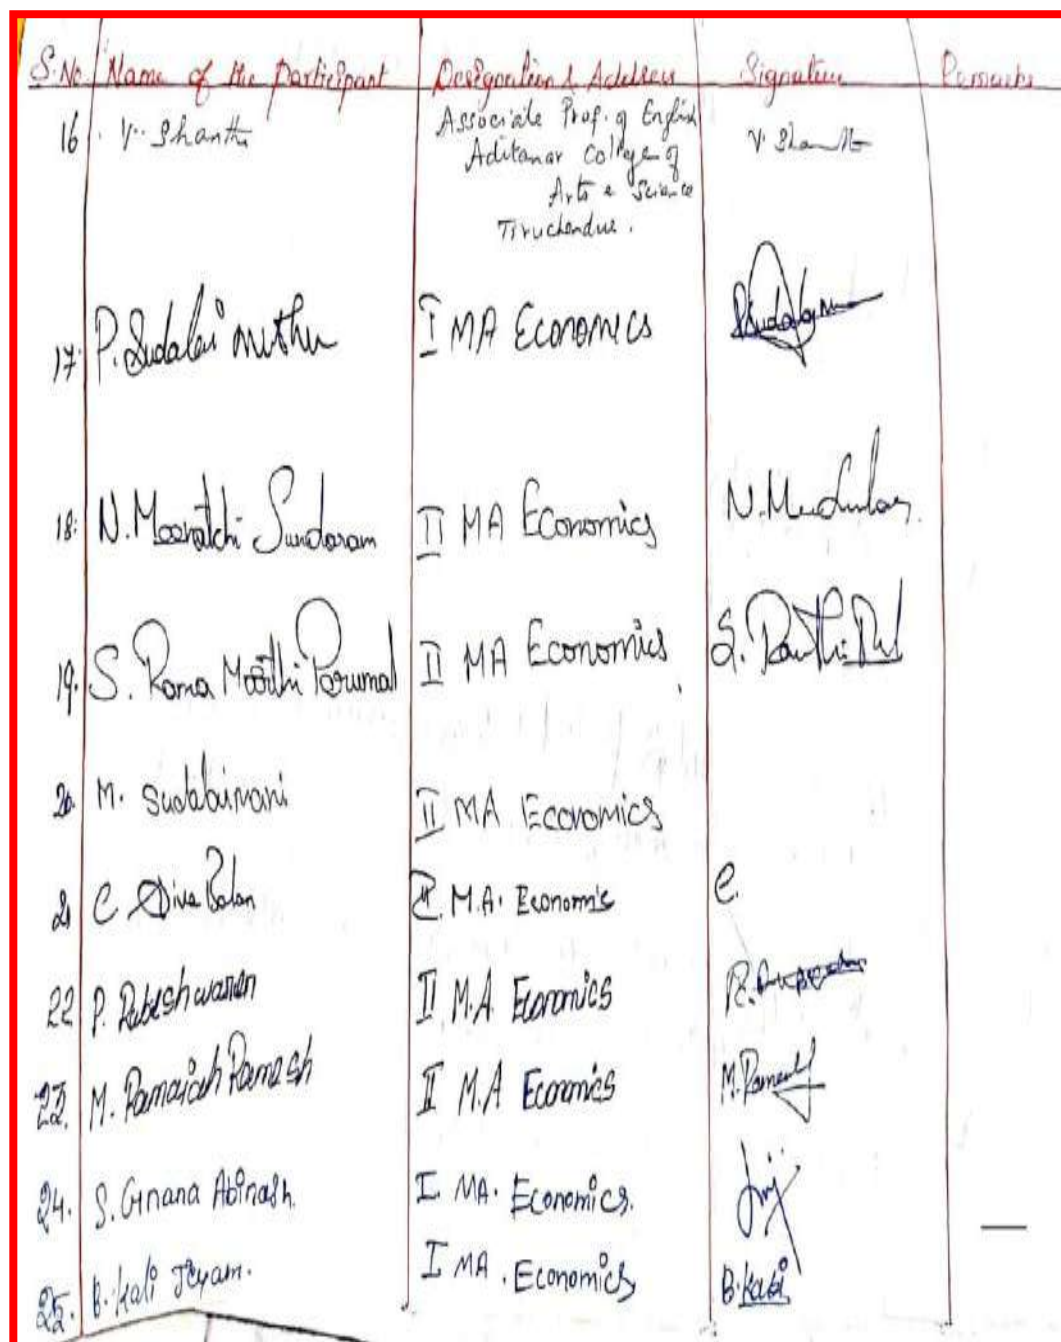 S.No. Name of the Participant Designation & Address Signature Remarks
16. V. Shanthi Associate Prof. of English V. Shanthi
Aditanar College of
Arts & Science
Tiruchendur.
17. P. Sudalai muthu I MA Economics
18. N. Meenatchi Sundaram II MA Economics
19. S. Rama Moorthi Perumal II MA Economics
20. M. Sudalaimani II MA Economics
21 C. Diva Balan II. M.A. Economic C.
22 P. II M.A. Economics
23. M. Ramaiah Ramesh II M.A Economics M. Ramesh
24. S. Gnana Abinash. I MA. Economics.
25. B. Kali Jeyam. I MA. Economics B. Kali